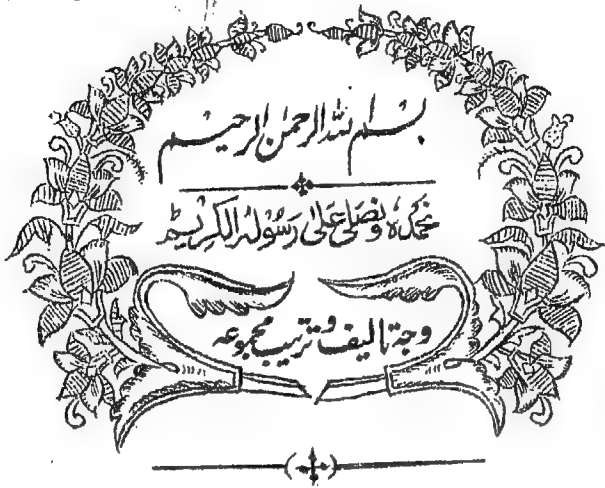 بسم الله الرحمن الرحيم
نحمده ونصلی علی رسوله الكريم
وجہ تالیف و ترتیب مجموعہ